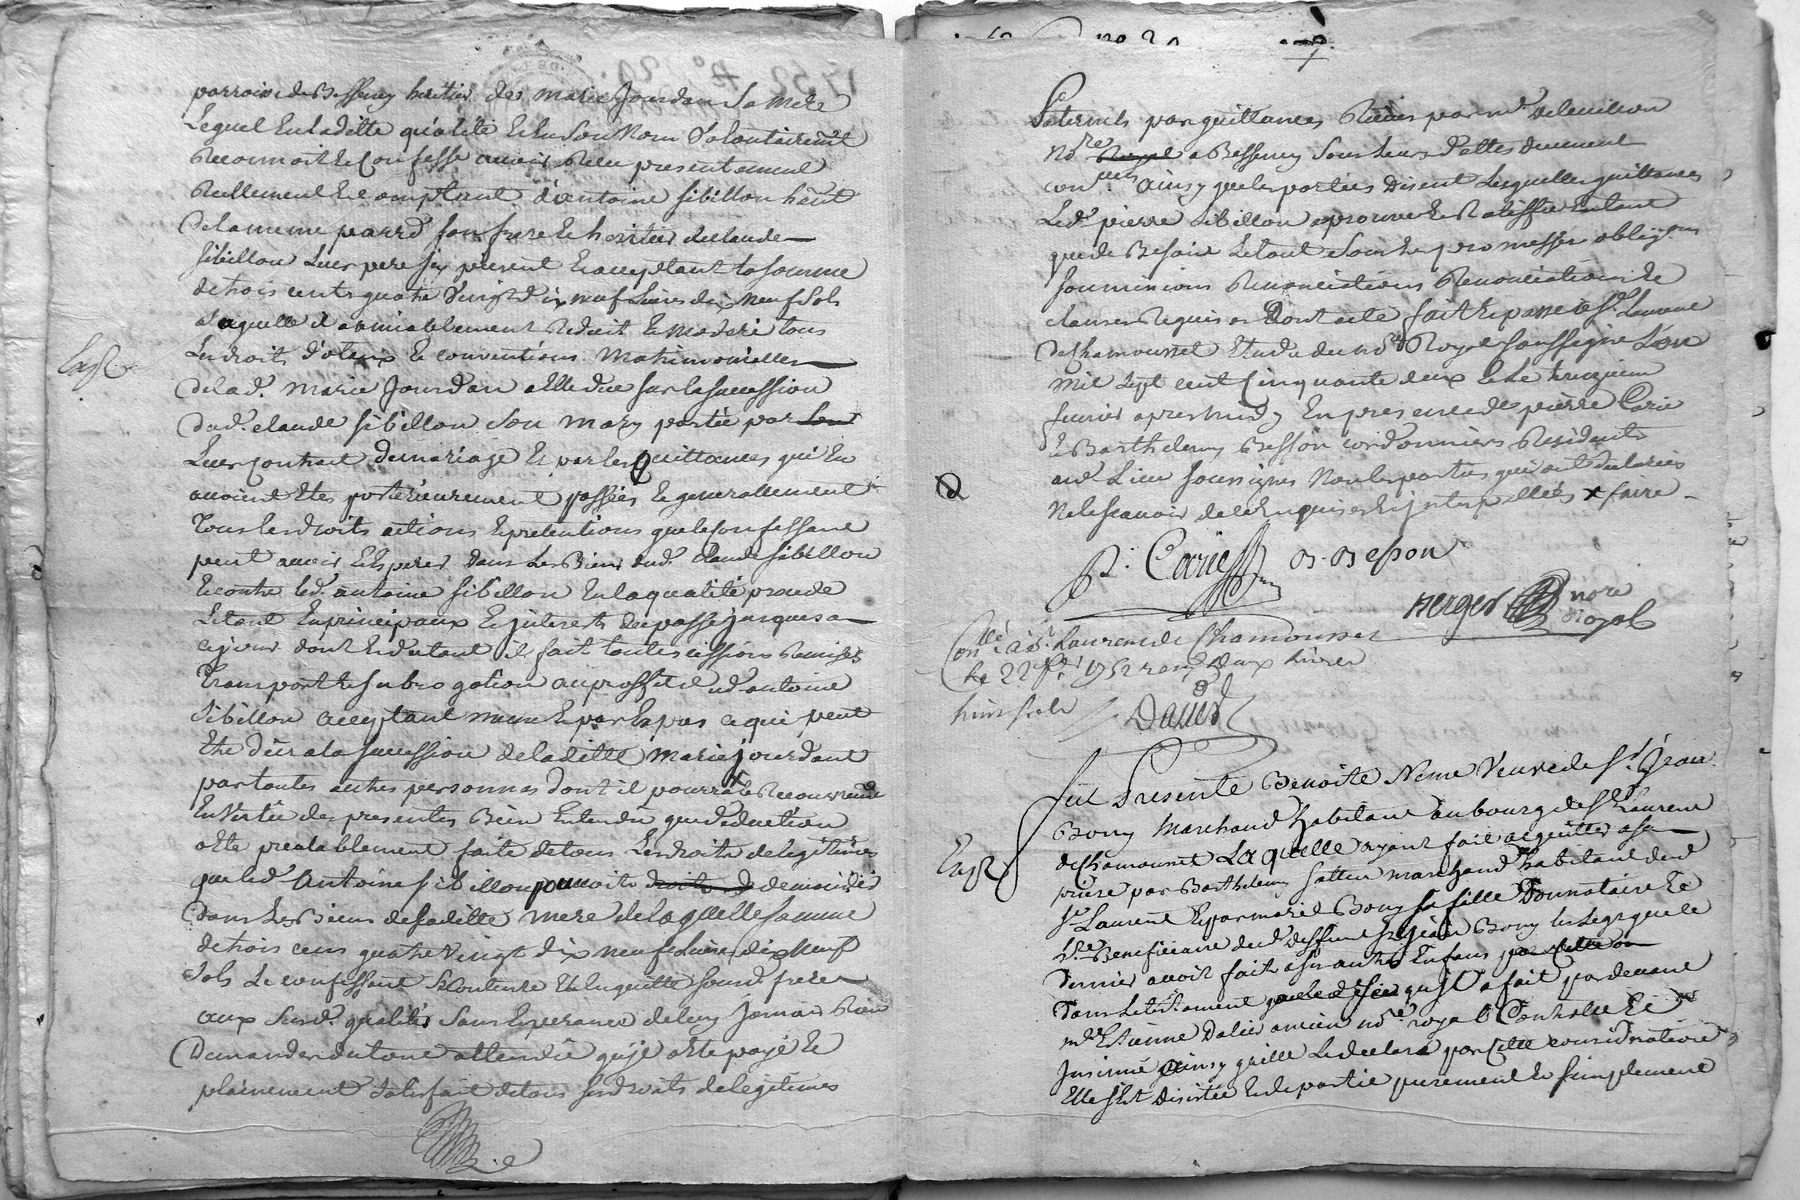 parroisse de Bessenay heritier de Marie Jourdan sa mere
Lequel En laditte qualité Et En son Nom Volontairemt
Reconnoit Et Confesse avoir Receu presentement
Reellement Et Comptant d'antoine sibillon habt
De la meme parrse son frere Et heritier de Claude
sibillon Leur pere icy present Et acceptant la somme
de trois cents quatre Vingt dix neuf Livres dix Neuf sols
a Laquelle il a amiablement Reduit Et Moderé tous
Les droits dotaux Et conventions Matrimonialles
De lad. Marie Jourdan a Elle due sur la succession
dud. claude sibillon son Mary portée par
Leur Contrat de mariage Et par les Quittances qui En
avoient Etés posterieurement passées Et generallement
Tous les droits actions Et pretentions que le confessant
peut avoir Et Esperer Dans Les Biens dud. Claude sibillon
Et contre led. antoine sibillon En la qualité procede
Le tout En principaux Et interets du passé jusques a
ce jour dont En du tout il fait toutes cessions Remises
Transport Et subrogation au proffit dud. antoine
sibillon acceptant a ce qui peut
Etre dû a la succession de laditte Marie Jourdant
par toutes autres personnes dont il pourra Recouvrement
En Vertu des presentes Bien Entendu que deduction
a Eté prealablement faite de tous Les droits de legitimes
que led. Antoine sibillon pouvoit demander
Dans Les Biens de saditte Mere de laquelle somme
de trois cens quatre Vingt dix neuf Livres dix Neuf
sols Le confessant se Contente Et En quitte sond. frere
aux susd. qualités sans Esperance de luy jamais Rien
Demander du tout attendu qu'il a Eté payé Et
plainement satisfait de tous ses droits de legitimes
paternels par quittances Reçues par me Delevillon
Nore a Bessenay sous leurs dattes duement
conées ainsy que les parties disent Lesquelles quittances
Led. pierre sibillon aprouve Et Ratiffie En tant
que de Besoin Le tout sous les promesses obligons
soumissions Renonciations Et
clauses Requises Dont acte fait Et passé a St Laurent
De Chamousset Etude du nore Royal soussigné L'an
Mil sept cent Cinquante deux Et Le treizieme
fevrier apres midy En presence de pierre Carie
Et Barthelemy Besson cordonniers Residents
aud. Lieu soussignes Non les parties qui ont declarées
Ne le scavoir de ce Enquises Et interpellées x faire
P. Carie B. Besson
Berger nore Royal
Conlé a St Laurent de Chamousset
le 22 fer 1752 reçu deux livres
huit sols David
Exp.
Fut Presente Benoite Neme Veuve de Sr Jean
Bony Marchand habitant au bourg de St Laurent
de Chamousset Laquelle ayant fait acquitter a sa
priere par Barthelemy marchand habitant dud.
St Laurent Et par marie Bony sa fille Donnataire Et
Beneficiaire dud. deffunt Sr Jean Bony les Legs que ce
dernier avoit fait a ses autres Enfans
Dans le testament qu'il a fait par devant
me Estienne Dalier ancien nore royal Controllé Et
Insinué ainsy qu'elle Le declare par Cette consideration
Elle s'Est Desistée Et departie purement Et simplement
Exp.